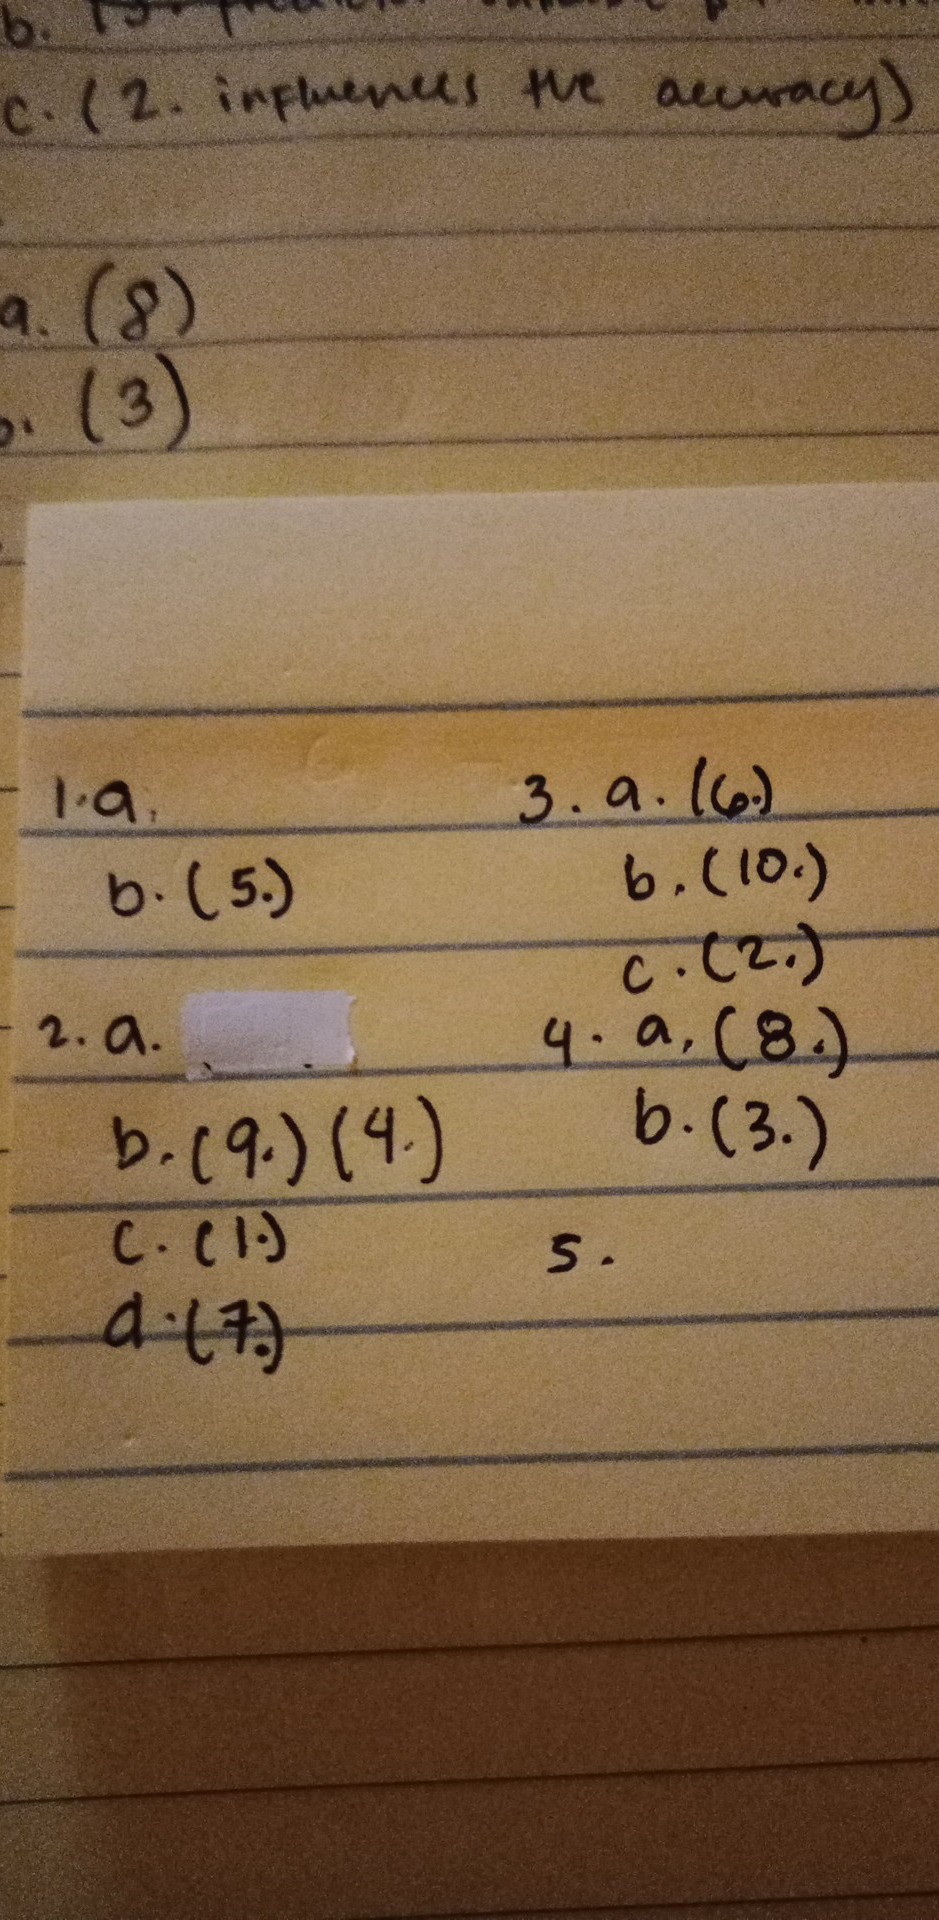 b.
c. (2. influences the accuracy)
a. (8)
b. (3)
1. a.
b. (5.)
2. a.
b. (9.) (4.)
c. (1.)
d. (7.)
3. a. (6.)
b. (10.)
c. (2.)
4. a. (8.)
b. (3.)
5.